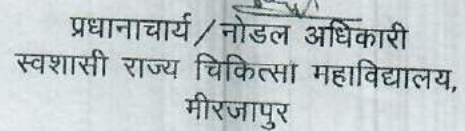 प्रधानाचार्य / नोडल अधिकारी
स्वशासी राज्य चिकित्सा महाविद्यालय,
मीरजापुर